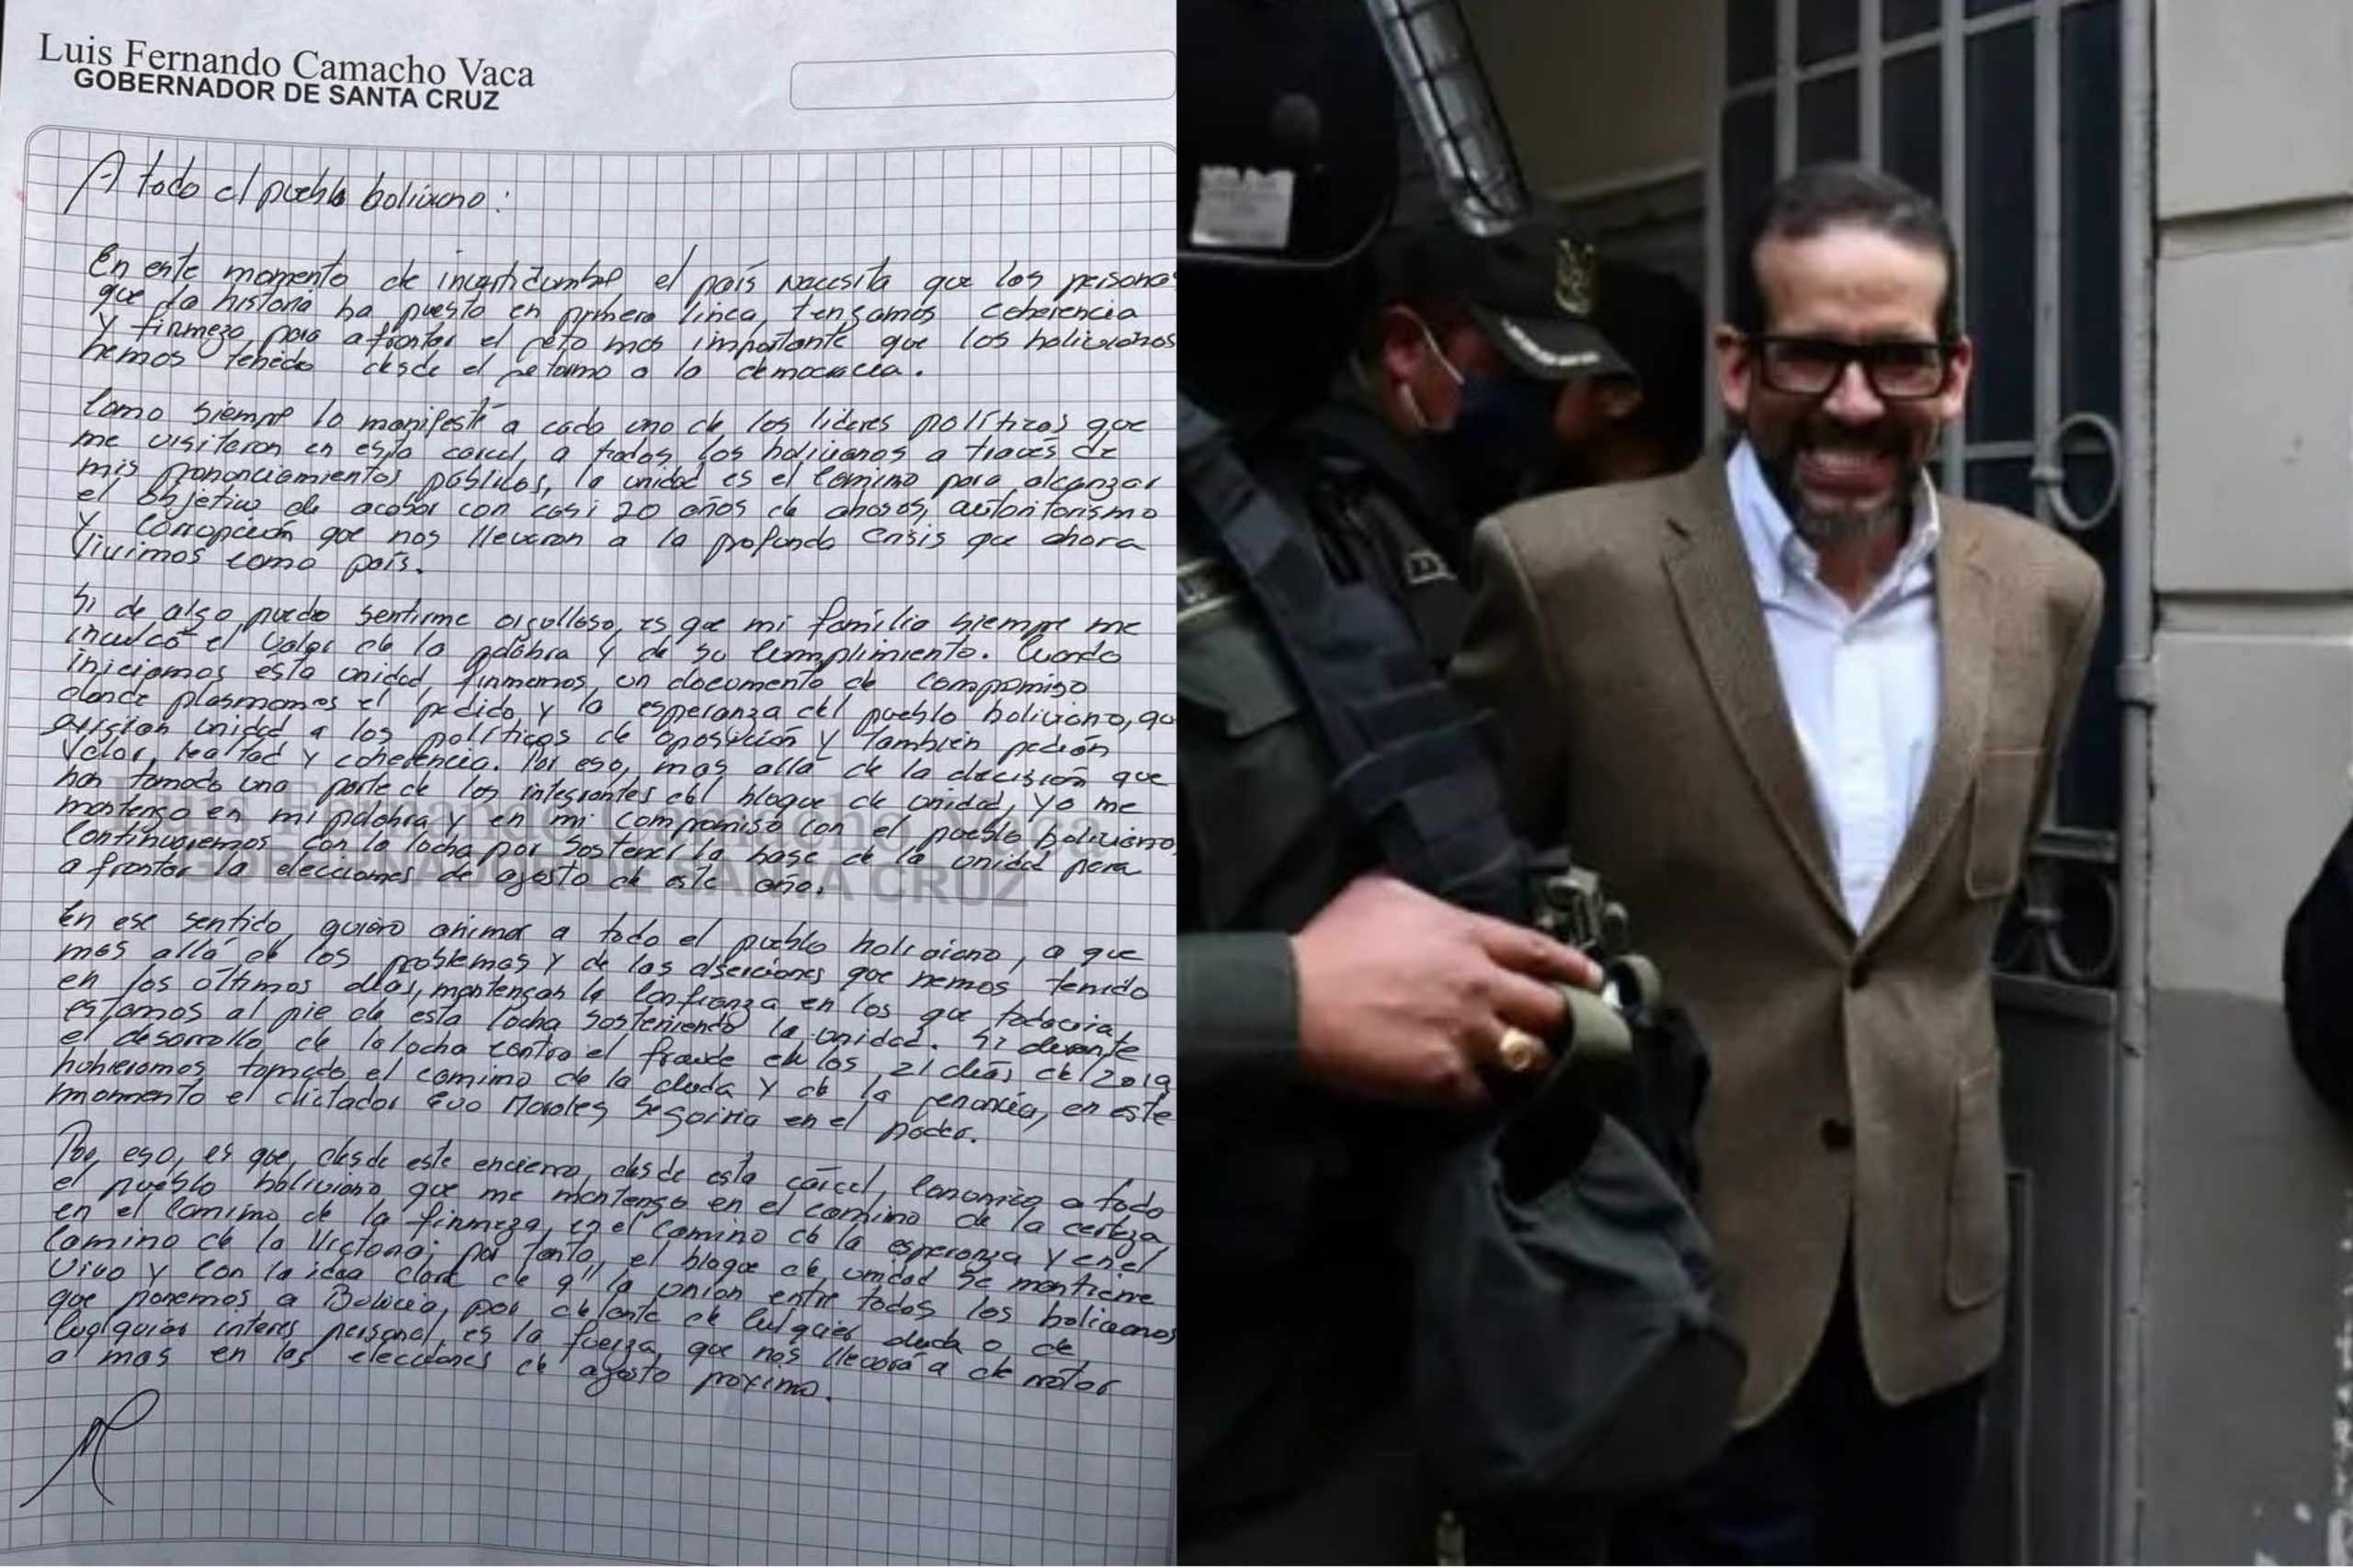 Luis Fernando Camacho Vaca
GOBERNADOR DE SANTA CRUZ
A todo el pueblo boliviano:
En este momento de incertidumbre el país necesita que las persona
que la historia ha puesto en primera linea, tengamos coherencia
y firmeza para afrontar el reto mas importante que los bolivianos
hemos tenido desde el retorno a la democracia.
Como siempre lo manifesté a cada uno de los lideres políticos que
me visitaron en esta carcel, a todos los bolivianos a través de
mis pononciamientos públicos, la unidad es el camino para alcanzar
el objetivo de acabar con casi 20 años de abusos, autoritarismo
y corrupción que nos llevaron a la profunda crisis que ahora
vivimos como país.
Si de algo puedo sentirme orgulloso, es que mi familia siempre me
inculcó el valor de la palabra y de su cumplimiento. Cuando
iniciamos esta unidad firmamos un documento de compromiso
donde plasmamos el pedido y la esperanza del pueblo boliviano, qu
exigian unidad a los políticos de oposición y también pedían
valor, lealtad y coherencia. Por eso, mas allá de la decisión que
han tomado una parte de los integrantes del bloque de unidad, yo me
mantengo en mi palabra y en mi compromiso con el pueblo boliviano,
Continuaremos con la lucha por sostener la base de la unidad para
afrontar la elecciones de agosto de este año.
Luis Fernando Camacho Vaca
GOBERNADOR DE SANTA CRUZ
En ese sentido, quiero animar a todo el pueblo boliviano, a que
mas allá de los problemas y de las deserciones que hemos tenido
en los últimos días, mantengan la confianza en los que todavía
estamos al pie de esta lucha sosteniendo la unidad. Si durante
el desarrollo de la lucha contra el fraude en los 21 días del 2019
hubieramos tomado el camino de la duda y de la renuncia, en este
momento el dictador Evo Morales seguiría en el poder.
Por eso, es que, desde este encierro, desde esta cárcel, comunico a todo
el pueblo boliviano que me mantengo en el camino de la certeza
en el camino de la firmeza, en el camino de la esperanza y en el
camino de la victoria; por tanto, el bloque de unidad se mantiene
vivo y con la idea clara de q" la union entre todos los bolivianos
que ponemos a Bolivia, por delante de culquier duda o de
cualquier interés personal, es la fuerza, que nos llevará a derrotar
a mas en las elecciones de agosto proximo.